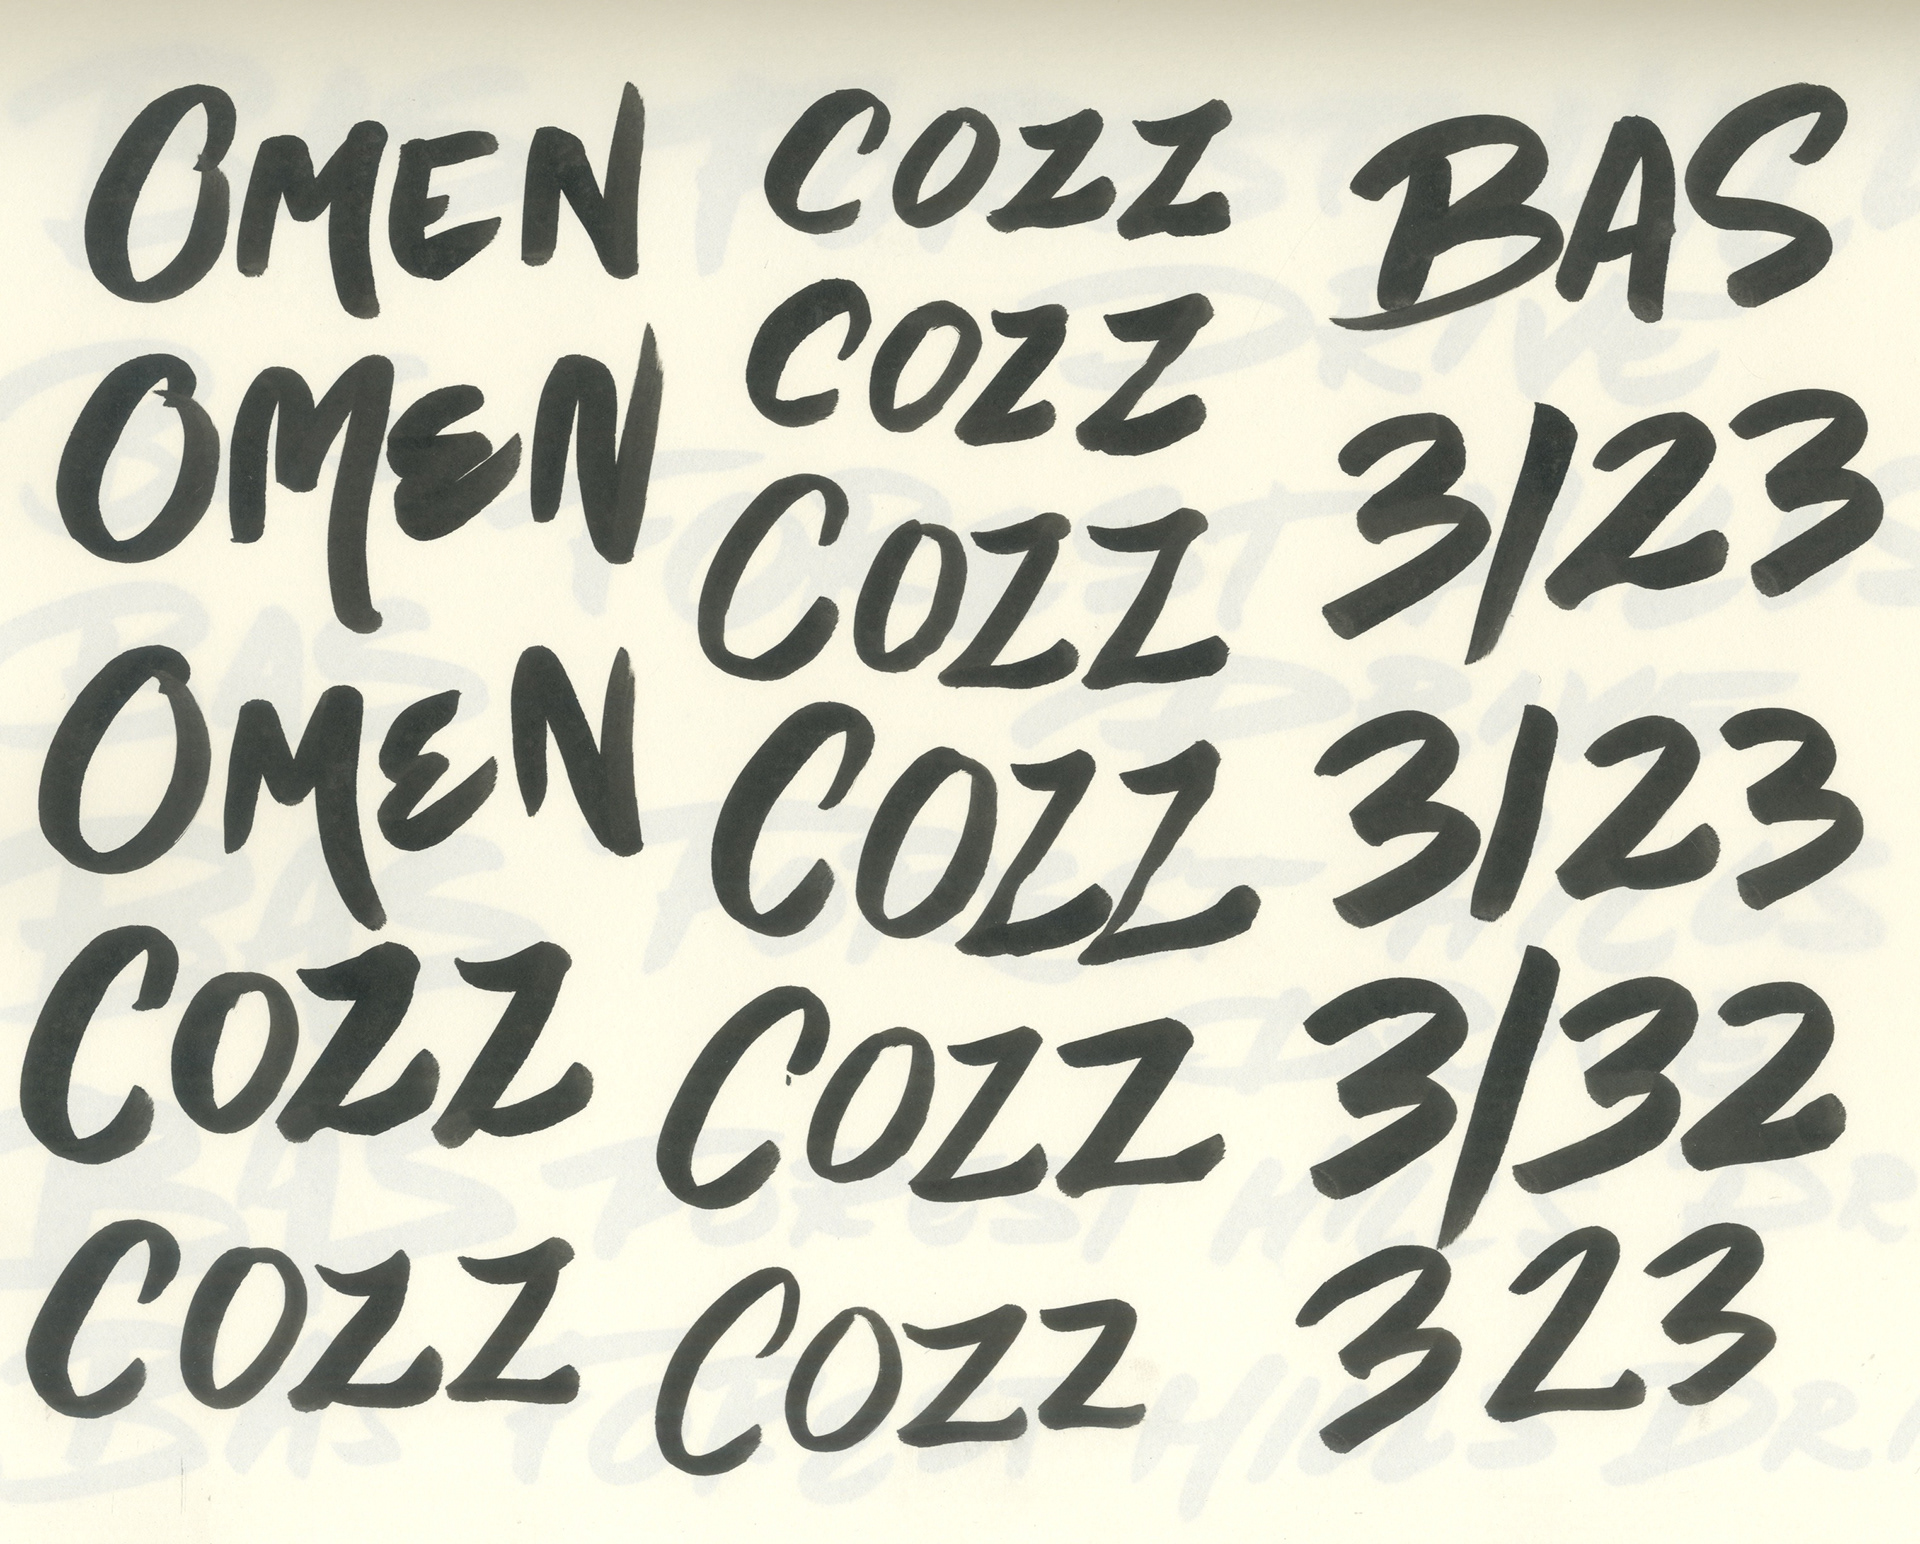 OMEN
OMEN
OMEN
COZZ
COZZ
COZZ
COZZ
COZZ
COZZ
COZZ
COZZ
BAS
3/23
3/23
3/32
323